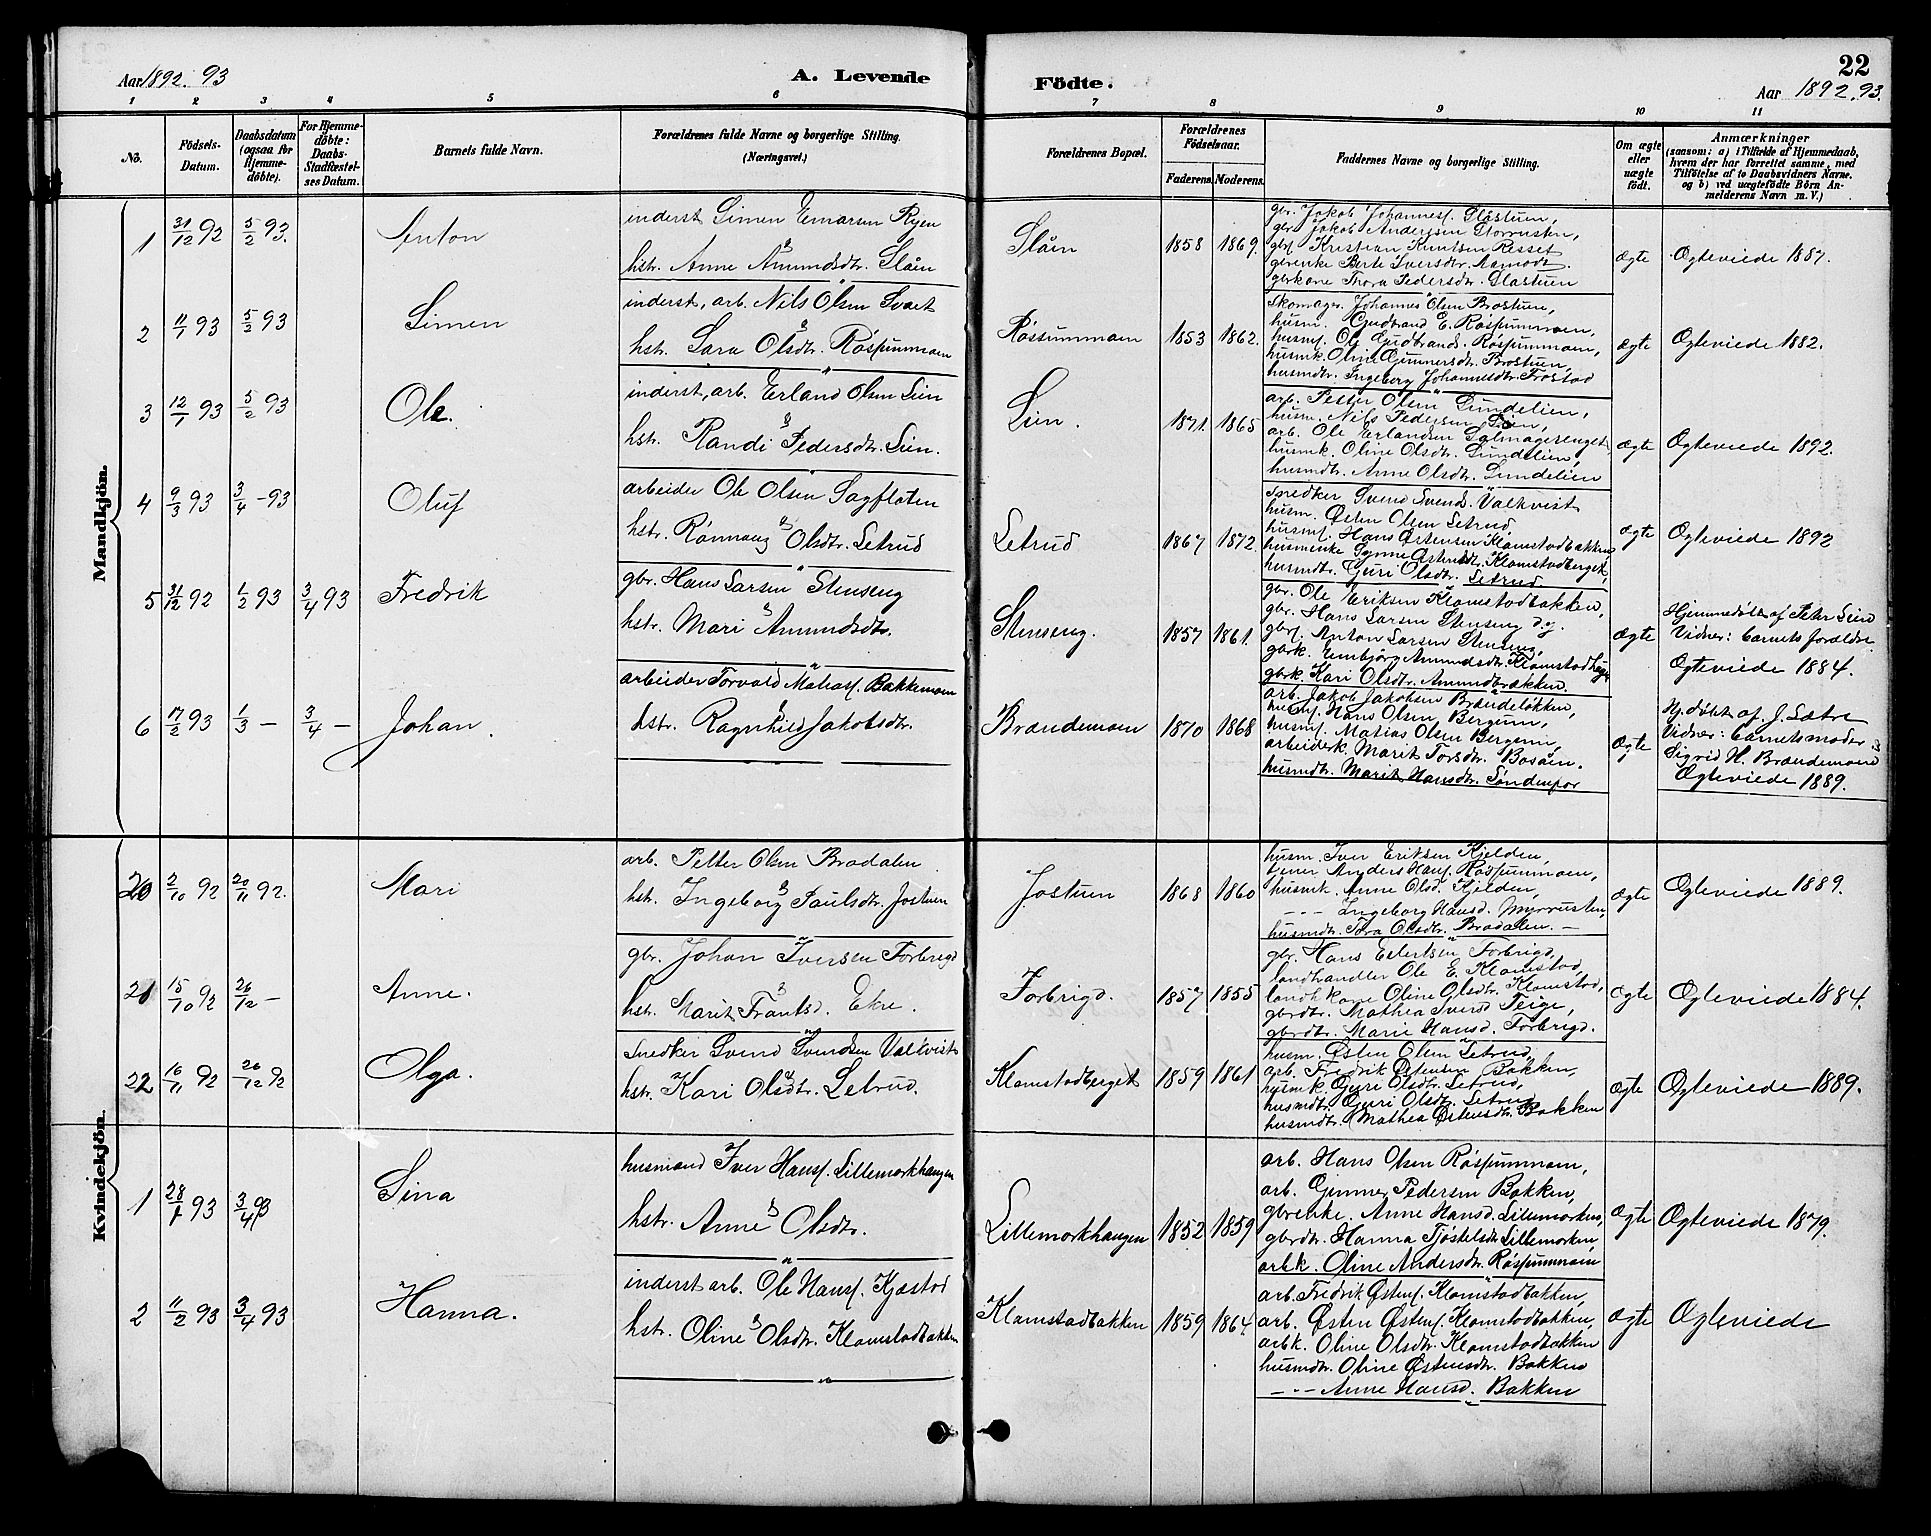 Aar 1892. 93
A. Levende Födte.
22
Aar 1892. 93.
1 2 3 4 5 6 7 8 9 10 11
No.
Födsels-Datum.
Daabsdatum (ogsaa for Hjemme-döbte).
For Hjemme-döbte: Daabs-Stadfæstel-ses Datum.
Barnets fulde Navn.
Forældrenes fulde Navne og borgerlige Stilling.
(Næringsvei.)
Forældrenes Bopæl.
Forældrenes Födselsaar.
Faderens. Moderens.
Faddernes Navne og borgerlige Stilling.
Om ægte eller uægte födt.
Anmærkninger
(saasom: a) i Tilfælde af Hjemmedaab, hvem der har forrettet samme, med Tilföielse af to Daabsvidners Navne. og b) ved uægtefödte Börn An-melderens Navn m. V.)
Mandkjön.
1 31/12 92 5/2 93. Anton
inderst Simen Ennarsen Ryen
&
hstr. Anne Amundsdtr. Slåen
Slåen 1858 1869.
gbr. Jakob Johannesf. Glåstuen,
gbr. Jakob Andersen Storrusten,
gbrf. Kristian Knutsen Risset
gbrenke Berte Iversdtr. Aamodt.
gbrkone Thora Pedersdtr. Glåstuen
ægte Ægteviede 1887.
2 11/1 93 5/2 93 Simen
inderst, arb. Nils Olsen Svaet
&
hstr. Sara Olsdtr. Røssummoen
Røssummoen 1853 1862.
Skomager. Johannes Olsen Brostuen,
husm. Gudbrand E. Røssummoen,
husmf. Ole Gudbrands. Røssummoen,
husmk. Oline Gunnersdtr. Brostuen,
husmdtr. Ingeborg Johannesdtr. Frostad
ægte Ægteviede 1882.
3 12/1 93 5/2 93 Ole.
inderst, arb. Erland Olsen Lien
&
hstr. Randi Pedersdtr. Lien.
Lien. 1871. 1865
arb. Petter Olsen Lundelien,
husm. Nils Pedersen Lien,
arb. Ole Erlandsen Salmagerenget
husmk. Oline Olsdtr. Lundelien,
husmdtr. Anne Olsdtr. Lundelien
ægte Ægteviede 1892.
4 9/3 93 3/4 -93 Oluf
arbeider Ole Olsen Sagfløten
&
hstr. Rønnaug Olsdtr. Letrud
Letrud 1867 1872.
Snedker Svend Svends. Valkvist
husm. Østen Olsen Letrud,
husmf. Hans Østensen Klomstadbakken,
husmenke Synne Østensdtr. Klomstadberget,
husmdtr. Guri Olsdtr. Letrud
ægte Ægteviede 1892
5 31/12 92 1/2 93 3/4 93 Fredrik
gbr. Hans Larsen Stenseng
&
hstr. Mari Amundsdtr.
Stenseng. 1857 1861.
gbr. Ole Eriksen Klomstadbakken,
gbr. Hans Larsen Stenseng d.y.
gbrf. Anton Larsen Stenseng,
gbrk. Embjørg Amundsdtr. Klomstadhaugen
gbrk. Kari Olsdtr. Amundbakken.
ægte
Hjemmedøbt af Peter Lien
Vidner: barnets forældre
Ægteviede 1884.
6 17/2 93 1/3 - 3/4 - Johan.
arbeider Torvald Matiasf. Bakkemoen
&
hstr. Ragnhild Jakobsdtr.
Brændemoen 1870 1868
arb. Jakob Jakobsen Brændeløkken,
husmf. Hans Olsen Bergum,
husmf. Matias Olsen Bergum,
arbeiderk. Marit Torsdtr. Bosåen.
husmdtr. Marit Hansdtr. Søndenfor
ægte
Hj.døbt af J. Sætre
Vidner: barnets moder &
Sigrid H. Brændemoen
Ægteviede 1889.
Kvindekjön.
20 2/10 92 20/11 92. Mari
arb. Petter Olsen Bradalen
&
hst. Ingeborg Paulsdtr. Jostuen
Jostuen 1868 1860
husm. Iver Eriksen Kjelden,
tjener Anders Hansf. Røssummoen,
husmk. Anne Olsd. Kjelden,
- - - Ingeborg Hansd. Myrrusten,
husmdtr. Tora Olsdtr. Bradalen. -
ægte Ægteviede 1889.
21 15/10 92 26/12 - Anne.
gbr. Johan Iversen Forbrigd
&
hst. Marit Frantsd. Ekre.
Forbrigd. 1857 1855
gbr. Hans Eilertsen Forbrigd,
landhandler Ole E. Klomstad,
landh.kone Oline Olsdtr. Klomstad,
gbrdtr. Mathea Iversd Teige,
gbrdtr. Marie Hansd. Forbrigd.
ægte Ægteviede 1884.
22 16/11 92 26/12 92 Olga.
Snedker Svend Svendsen Valkvist
&
hst. Kari Olsdtr. Letrud.
Klomstadberget 1859 1861
husm. Østen Olsen Letrud,
arb. Fredrik Østensen Bakken,
husmk. Guri Olsdtr. Letrud,
husmdtr. Guri Olsdtr. Letrud
husmdtr. Mathea Østensdtr. Bakken
ægte Ægteviede 1889.
1 28/1 93 3/4 93 Sina
husmand Iver Hansf. Lillemorkhaugen
&
hstr. Anne Olsdtr.
Lillemorkhaugen 1852 1859
arb. Hans Olsen Røssummoen,
arb. Gunner Pedersen Bakken,
gbrenke. Anne Hansd. Lillemorken,
gbrdtr. Hanna Tjøstelsdtr. Lillemorken
arbk. Oline Andersdtr. Røssummoen
ægte Ægteviede 1879.
2 11/2 93 3/4 93 Hanna.
inderst arb. Ole Hansf. Kjæstad
&
hstr. Oline Olsdtr. Klomstadbakken
Klomstadbakken 1859 1864
arb. Fredrik Østensf. Klomstadbakken,
arb. Østen Østensf. Klomstadbakken,
arbk. Oline Olsdtr. Klomstadbakken
husmdtr. Oline Østensdtr. Bakken
- - - Anne Hansd. Bakken
ægte Ægteviede